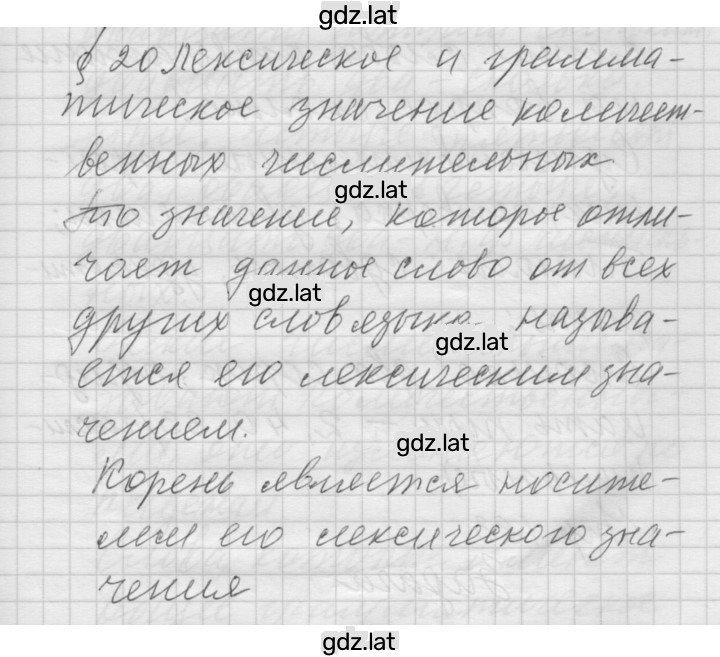 gdz.lat
§ 20 Лексическое и грамма-
тическое значение количест-
венных числительных.
gdz.lat
То значение, которое отли-
чает данное слово от всех
gdz.lat
других слов языка называ-
gdz.lat
ется его лексическим зна-
чением.
gdz.lat
Корень является носите-
лем его лексического зна-
чения
gdz.lat